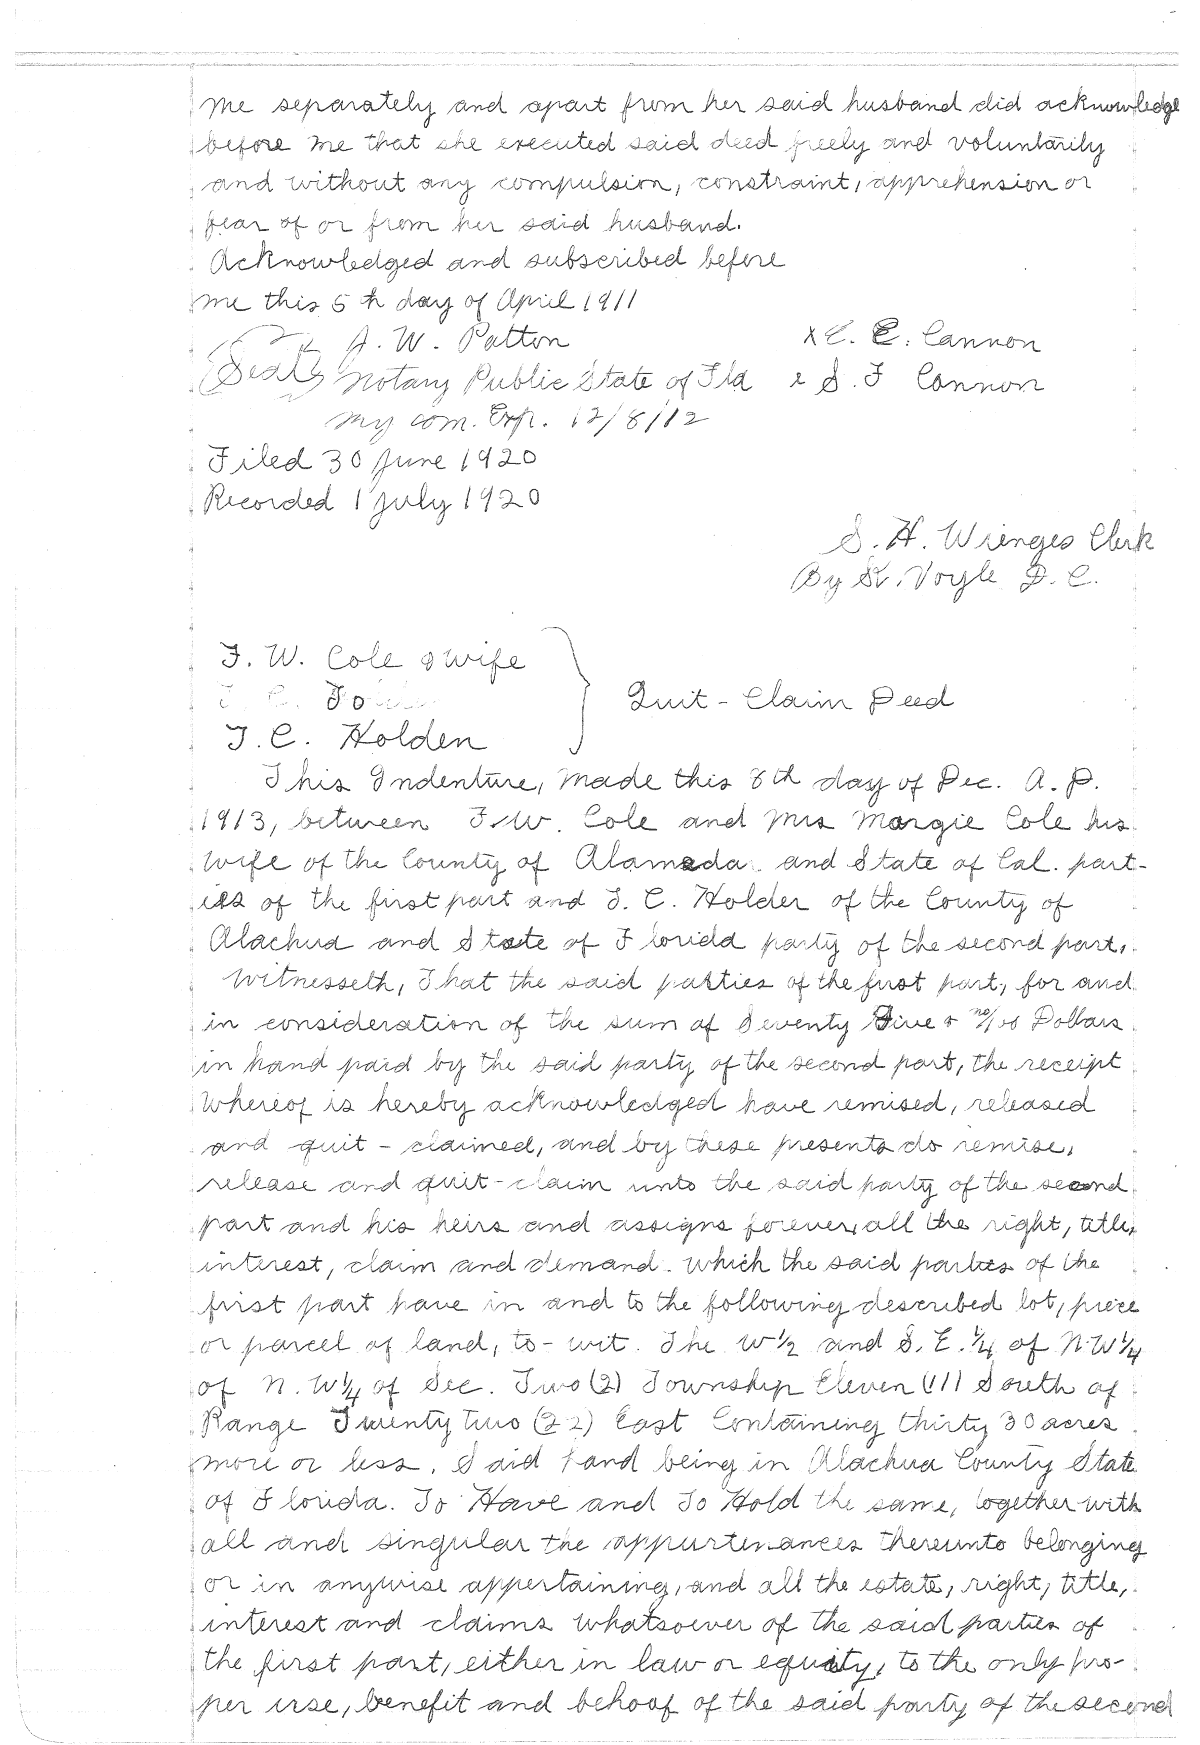 me separately and apart from her said husband did acknowledge
before me that she executed said deed freely and voluntarily
and without any compulsion, constraint, apprehension or
fear of or from her said husband.
Acknowledged and subscribed before
me this 5th day of April 1911
J. W. Patton x C. C. Cannon
(Seal) Notary Public State of Fla & S. F Cannon
My com. Exp. 12/8/12
Filed 30 June 1920
Recorded 1 July 1920
S. H. Wienges Clerk
By Voyle D. C.
F. W. Cole & wife
Quit - Claim Deed
T. C. Holden
This Indenture, made this 8th day of Dec. A. D.
1913, between F. W. Cole and Mrs Margie Cole his
wife of the County of Alameda and State of Cal. part-
ies of the first part and T. C. Holder of the County of
Alachua and State of Florida party of the second part,
Witnesseth, That the said parties of the first part, for and
in consideration of the sum of Seventy Five & no/100 Dollars
in hand paid by the said party of the second part, the receipt
whereof is hereby acknowledged have remised, released
and quit - claimed, and by these presents do remise,
release and quit-claim unto the said party of the second
part and his heirs and assigns forever, all the right, title,
interest, claim and demand which the said parties of the
first part have in and to the following described lot, piece
or parcel of land, to - wit. The W 1/2 and S. E. 1/4 of N. W 1/4
of N. W 1/4 of Sec. Two (2) Township Eleven (11) South of
Range Twenty two (22) East Containing thirty 30 acres
more or less. Said land being in Alachua County State
of Florida. To Have and To Hold the same, together with
all and singular the appurtenances thereunto belonging
or in anywise appertaining, and all the estate, right, title,
interest and claims whatsoever of the said parties of
the first part, either in law or equity, to the only pro-
per use, benefit and behoof of the said party of the second